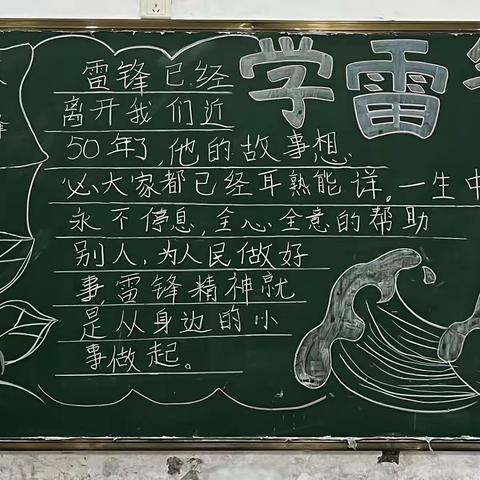 学雷
雷锋已经
离开我们近
50年了,他的故事想
必大家都已经耳熟能详。一生中
永不停息,全心全意的帮助
别人,为人民做好
事,雷锋精神就
是从身边的小
事做起。